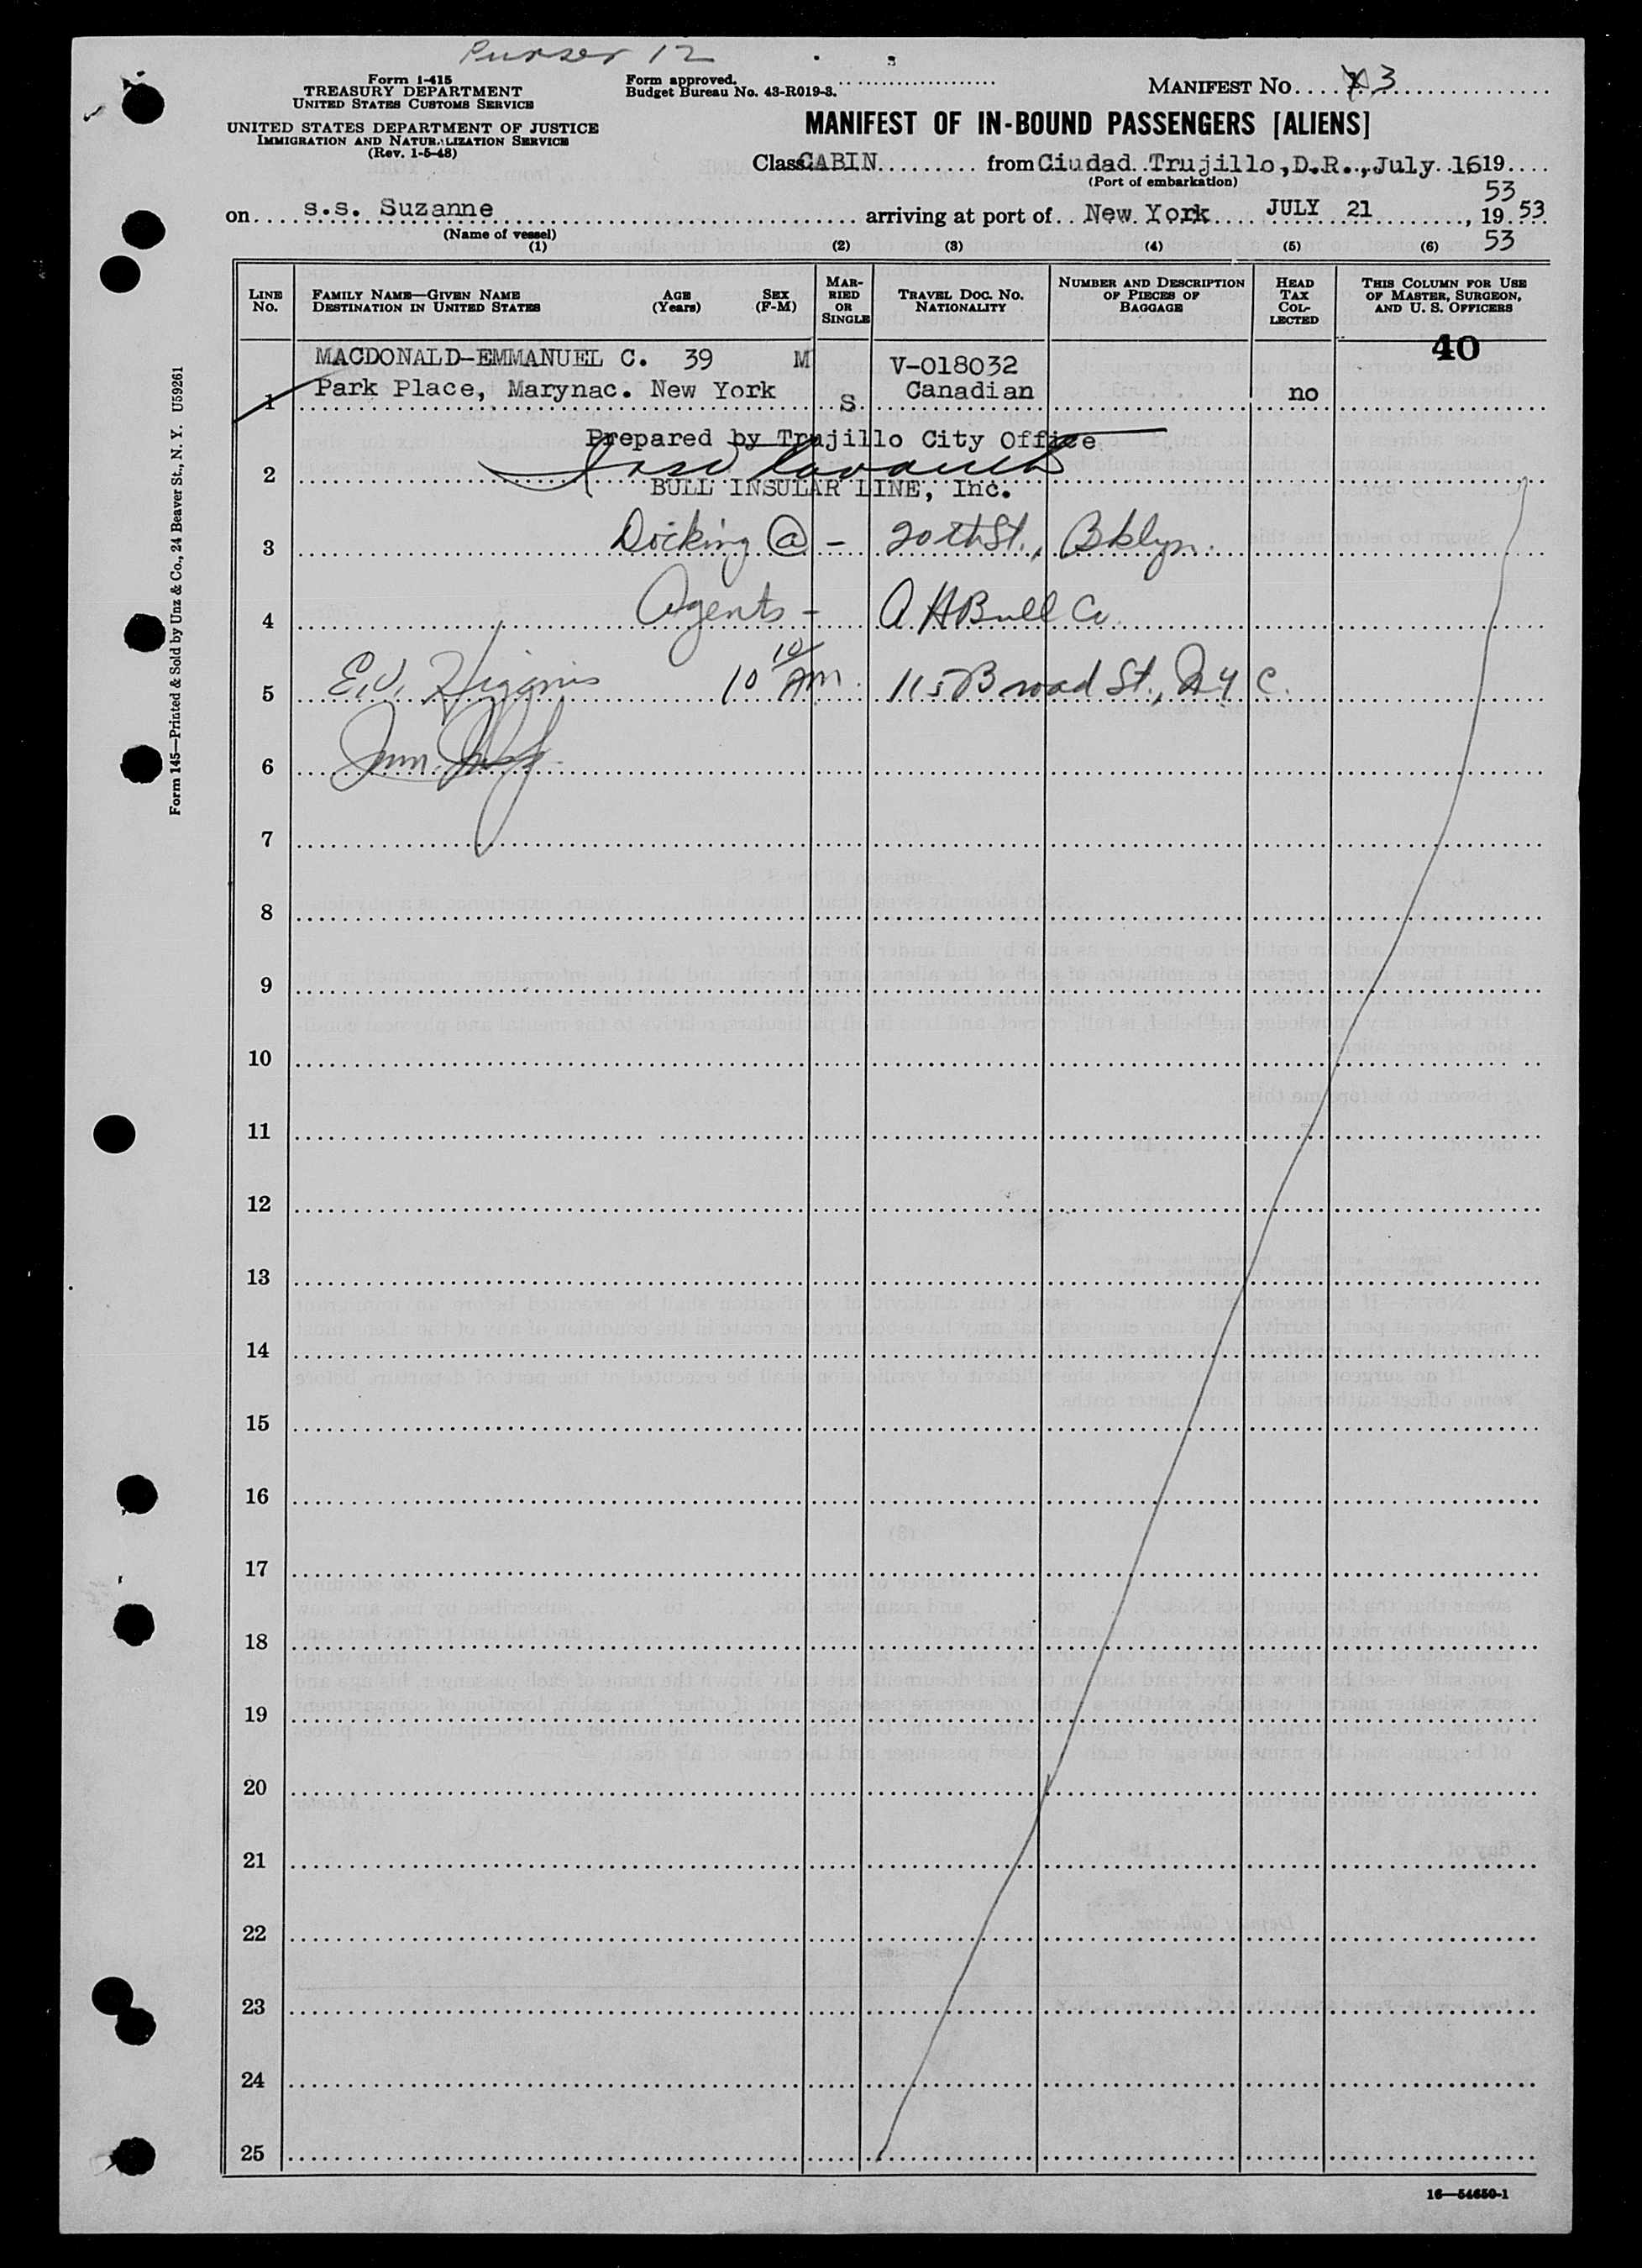 Purser 12
Form I-415
TREASURY DEPARTMENT
UNITED STATES CUSTOMS SERVICE
UNITED STATES DEPARTMENT OF JUSTICE
IMMIGRATION AND NATURALIZATION SERVICE
(Rev. 1-5-48)
Form approved.
Budget Bureau No. 43-R019-3.
MANIFEST NO. 3
MANIFEST OF IN-BOUND PASSENGERS [ALIENS]
Class CABIN from Ciudad Trujillo, D.R., July 16 19 53
(Port of embarkation)
on s.s. Suzanne arriving at port of New York JULY 21, 19 53
(Name of vessel)
53
(1) (2) (3) (4) (5) (6)
LINE NO. FAMILY NAME—GIVEN NAME DESTINATION IN UNITED STATES AGE (Years) SEX (F-M) MARRIED OR SINGLE TRAVEL DOC. NO. NATIONALITY NUMBER AND DESCRIPTION OF PIECES OF BAGGAGE HEAD TAX COLLECTED THIS COLUMN FOR USE OF MASTER, SURGEON, AND U. S. OFFICERS
40
MACDONALD-EMMANUEL C. 39 M V-018032
1 Park Place, Marynac. New York S Canadian no
Prepared by Trujillo City Office
2
BULL INSULAR LINE, Inc.
3 Docking @ - 20th St., Bklyn.
4 Agents - A H Bull Co.
5 E.V. Higgins 10 10/ AM. 115 Broad St., N Y C.
6 Imm.
7
8
9
10
11
12
13
14
15
16
17
18
19
20
21
22
23
24
25
Form 145—Printed & Sold by Unz & Co., 24 Beaver St., N. Y. U59261
16—54650-1